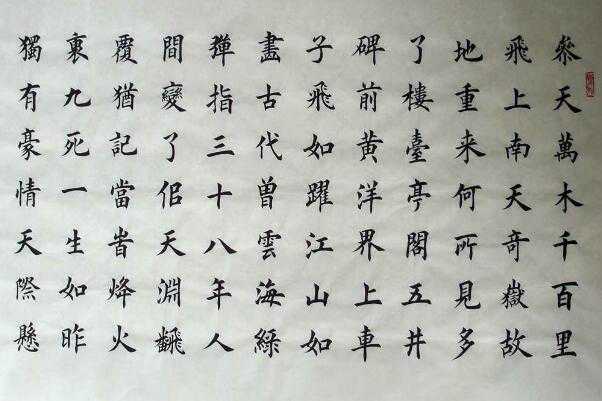 叅天萬木千百里
飛上南天奇嶽故
地重来何所見多
了樓臺亭閣五井
碑前黄洋界上車
子飛如躍江山如
畵古代曽雲海緑
彈指三十八年人
間變了佀天淵飜
覆猶記當旹烽火
裏九死一生如昨
獨有豪情天際懸